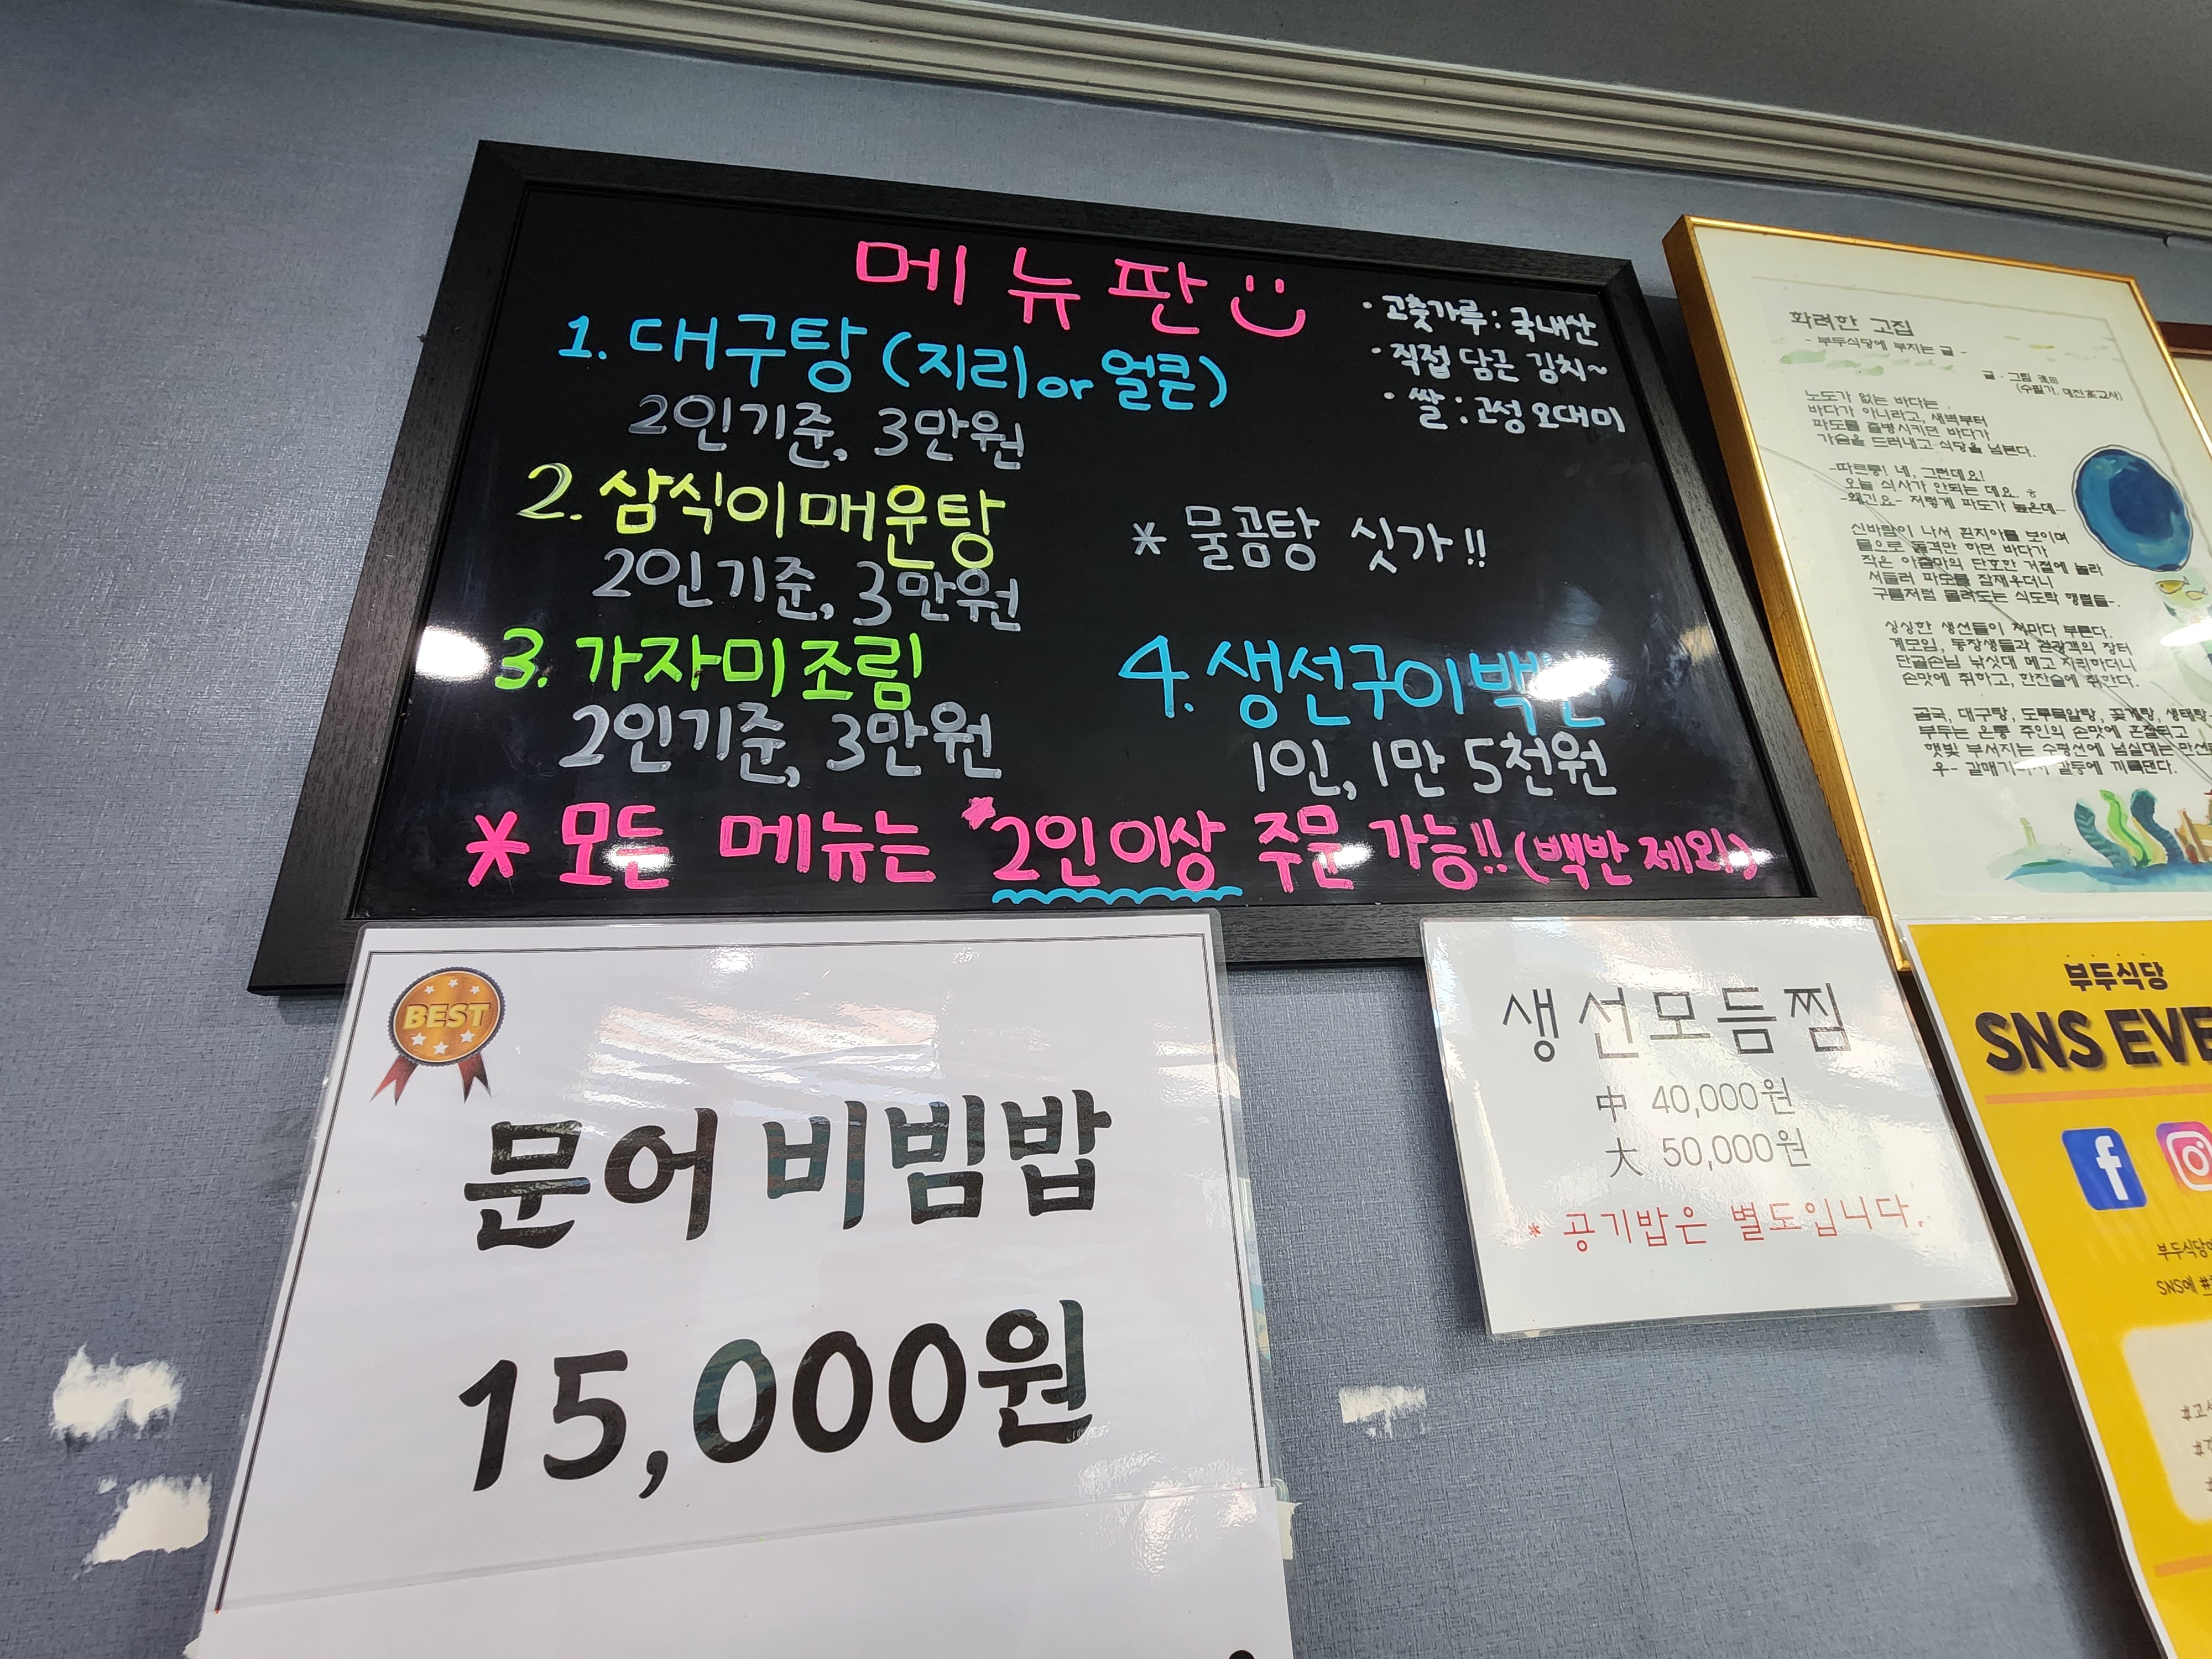 메뉴판
1. 대구탕 (지리 or 얼큰)
2인기준, 3만원
2. 삼식이매운탕
2인기준, 3만원
3. 가자미조림
2인기준, 3만원
· 고춧가루 : 국내산
· 직접 담근 김치~
· 쌀 : 고성 오대미
* 물곰탕 싯가!!
4. 생선구이백반
1인, 1만 5천원
* 모든 메뉴는 *2인이상 주문 가능!! (백반 제외)
BEST
문어 비빔밥
15,000원
생선모듬찜
中 40,000원
大 50,000원
* 공기밥은 별도입니다.
화려한 고집
- 부두식당에 부치는 글 -
글 · 그림
노도가 없는 바다는,
바다가 아니라고, 새벽부터
파도를 출병시키던 바다가
가슴을 드러내고 식당을 넘본다.
-따르릉! 네, 그런데요!
오늘 식사가 안되는 데요.
-왜긴요- 저렇게 파도가 높은데-
신바람이 나서 흰치아를 보이며
뭍으로 돌격만 하던 바다가
작은 아줌마의 단호한 거절에 놀라
서둘러 파도를 잠재우더니
구름처럼 몰려드는 식도락 행렬들-.
싱싱한 생선들이 저마다 부른다.
계모임, 동창생들과 관광객의 장터
단골손님 낚싯대 메고 자리하더니
손맛에 취하고, 한잔술에 취한다.
곰국, 대구탕, 도루묵알탕, 꽃게탕, 생태탕
부두는 온통 주인의 손맛에 혼절되고
햇빛 부서지는 수평선에 넘실대는
우- 갈매기 갈등에 끼룩댄다.
부두식당
SNS EVE
부두식당에
SNS에